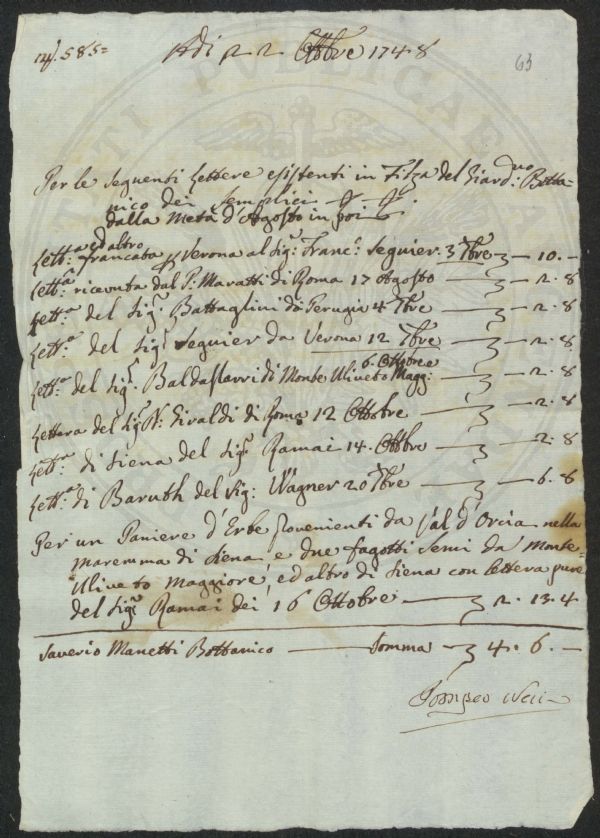 585=
Adi 22 Ottbre 1748
63
Per le seguenti Lettere esistenti in Filza del Giard:no Botta-
nico dei Semplici
dalla Metà d'Agosto in poi
Lett:a ed altro francata p Verona al Sig: Franc:o Seguier 3 7bre — 10. —
Lett:a ricevuta dal P: Maratti di Roma 17 Agosto — 2. 8
Lett:a del Sig: Battaglini di Perugia 4 7bre — 2. 8
Lett:a del Sig: Seguier da Verona 12 7bre — 2. 8
Lett:a del Sig: di Monte Uliveto Magg: 6. Ottobre — 2. 8
Lettera del Sig: N: Givaldi di Roma 12 Ottobre — 2. 8
Lett:a di Siena del Sig: Ramai 14. Ottbre — 2. 8
Lett:a di Baruth del Sig: Wagner 20 7bre — 6. 8
Per un Paniere d'Erbe provenienti da Val d'Orcia nella
maremma di Siena e due fagotti Semi da Monte-
Uliveto Maggiore, ed altro di Siena con lettera pure
del Sig: Ramai dei 16 Ottobre — 2. 13. 4
Saverio Manetti Bottanico — Somma — 4. 6. —
Pompeo Neri
NTI PUBLICAE